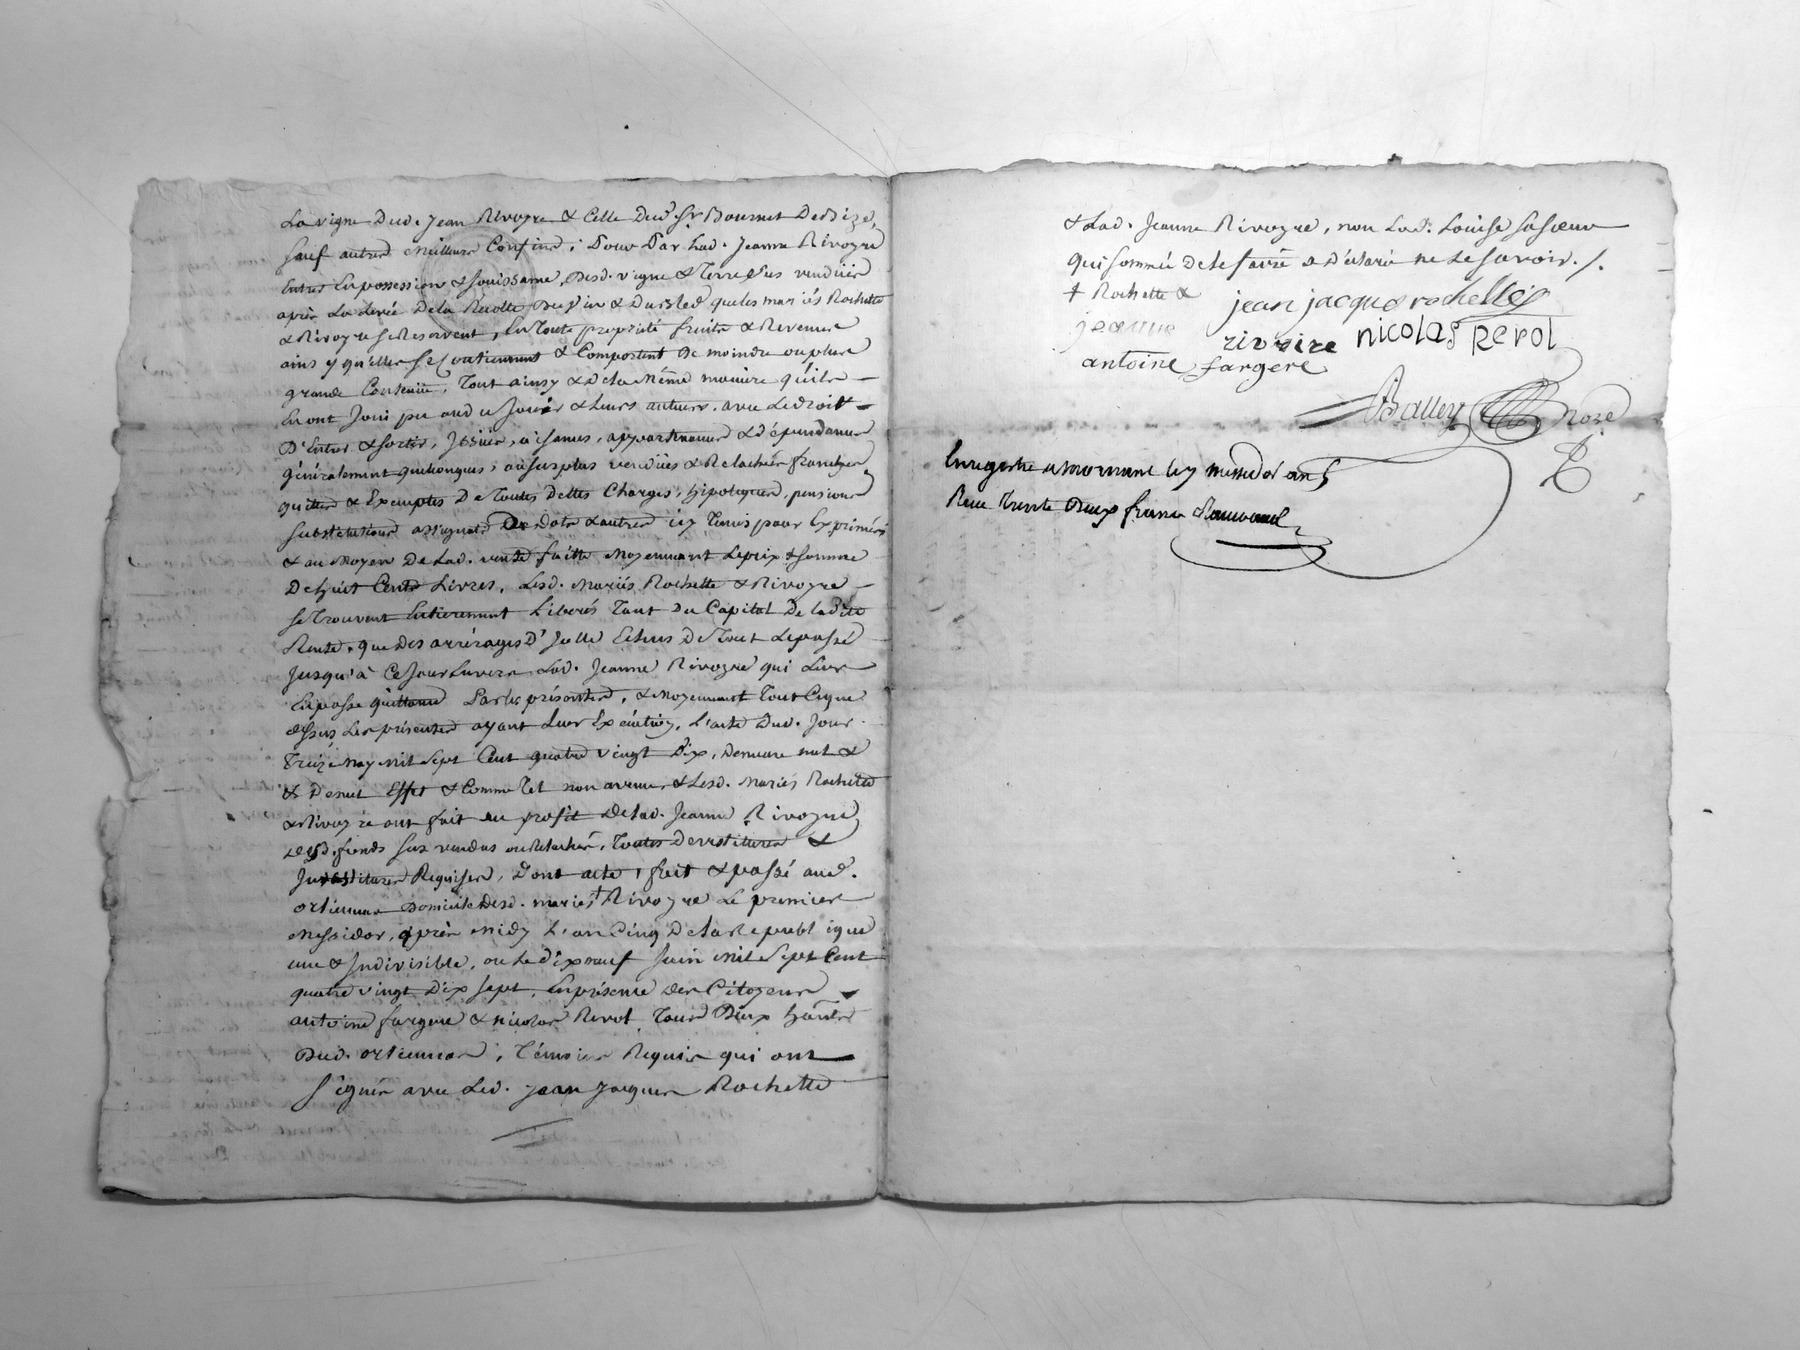 La vigne Dud. Jean Rivoyre & Celle Dud. Sr Bournet De Bize,
sauf autres meilleurs Confins; Pour Par Lad. Jeanne Rivoyre
Entrer En possession & Jouissance, Desd. vigne & Terre sus vendües
après La Levée De la Récolte Du vin & Du bled que les mariés Rochette
& Rivoyre se Reservent, En Toute propriété fruits & Revenus
ainsy qu'elles se Contiennent & Comportent De moindre ou plus
grande Contenüe, Tout ainsy & De la Même maniere qu'ils
En ont Joüi pu ou dû Joüir & Leurs auteurs, avec Le droit
D'Entrer & sortir, Issües, aisances, appartenances & dépendances
généralement quelconques, au surplus vendües & Relachées franches
quittes & Exemptes De Toutes Dettes Charges, hipoteques, pensions
substitutions assignats De Dots & autres icy Tenus pour Exprimés
& au moyen De Lad. vente faitte moyennant Le prix & somme
De huit Cents Livres, Lesd. mariés Rochette & Rivoyre
se Trouvent Entierement Liberés Tant Du Capital De Ladite
Rente, que Des arrérages D'Jcelle Echus De Tout Le passé
Jusqu'à Ce Jour Envers Lad. Jeanne Rivoyre qui Leur
En passe quittance Par les présentes, & moyennant Tout Ce que
dessus Les présentes ayant Leur Exécution, L'acte Dud. Jour
Treize may mil sept Cent quatre vingt Dix, Demeure nul &
& De nul Effet & Comme Tel non avenu & Lesd. mariés Rochette
& Rivoyre ont fait au profit De Lad. Jeanne Rivoyre
Desd. fonds sus vendus ou Relachés, Toutes Devestitures &
Jnvestitures Requises, Dont acte, fait & passé aud.
orliennas Domicile Desd. mariés † Rivoyre Le premier
Messidor, après midy L'an Cinq De la Republique
une & Indivisible, ou Le dix neuf Juin mil Sept Cent
quatre vingt Dix sept, En présence des Citoyens
antoine fargere & nicolas Revol, Tous Deux hants
Dud. orliennas, Témoins Requis qui ont
signés avec Led. Jean Jacques Rochette
& Lad. Jeanne Rivoyre, non Lad. Louise sa sœur
qui sommée De le faire a Déclaré ne Le savoir ./.
† Rochette &
jean jacque rochette
jeanne rivoire nicolas Revol
antoine fargere
Balley Nore
Enregistré a mornant le 7 messidor an 5
Recu trente Deux francs